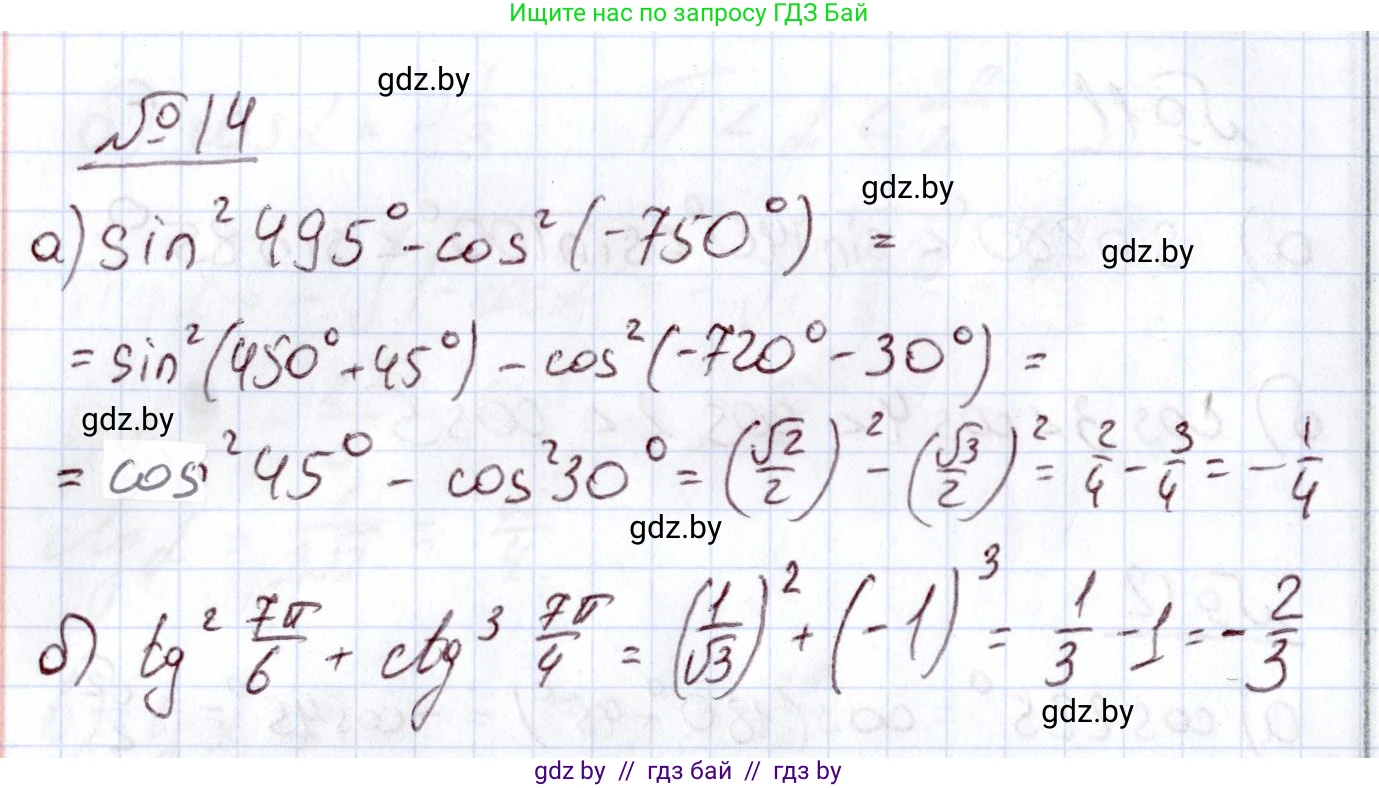 Ищите нас по запросу ГДЗ Бай
gdz.by
№14
gdz.by
а) sin² 495° - cos² (-750°) =
gdz.by
= sin² (450° + 45°) - cos² (-720° - 30°) =
gdz.by
= cos² 45° - cos² 30° = (√2/2)² - (√3/2)² = 2/4 - 3/4 = - 1/4
gdz.by
б) tg² 7π/6 + ctg³ 7π/4 = (1/√3)² + (-1)³ = 1/3 - 1 = - 2/3
gdz.by
gdz by // гдз бай // гдз by